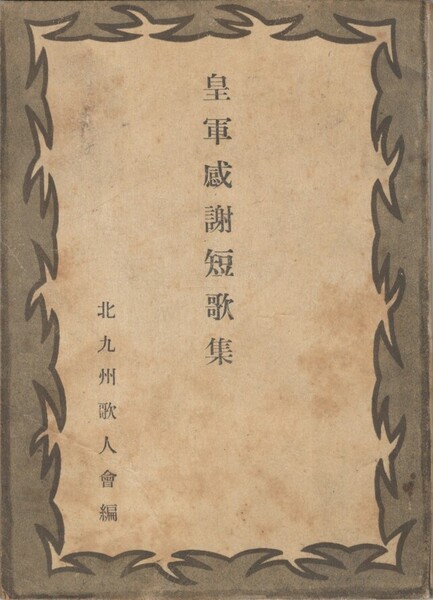 皇軍感謝短歌集
北九州歌人會編